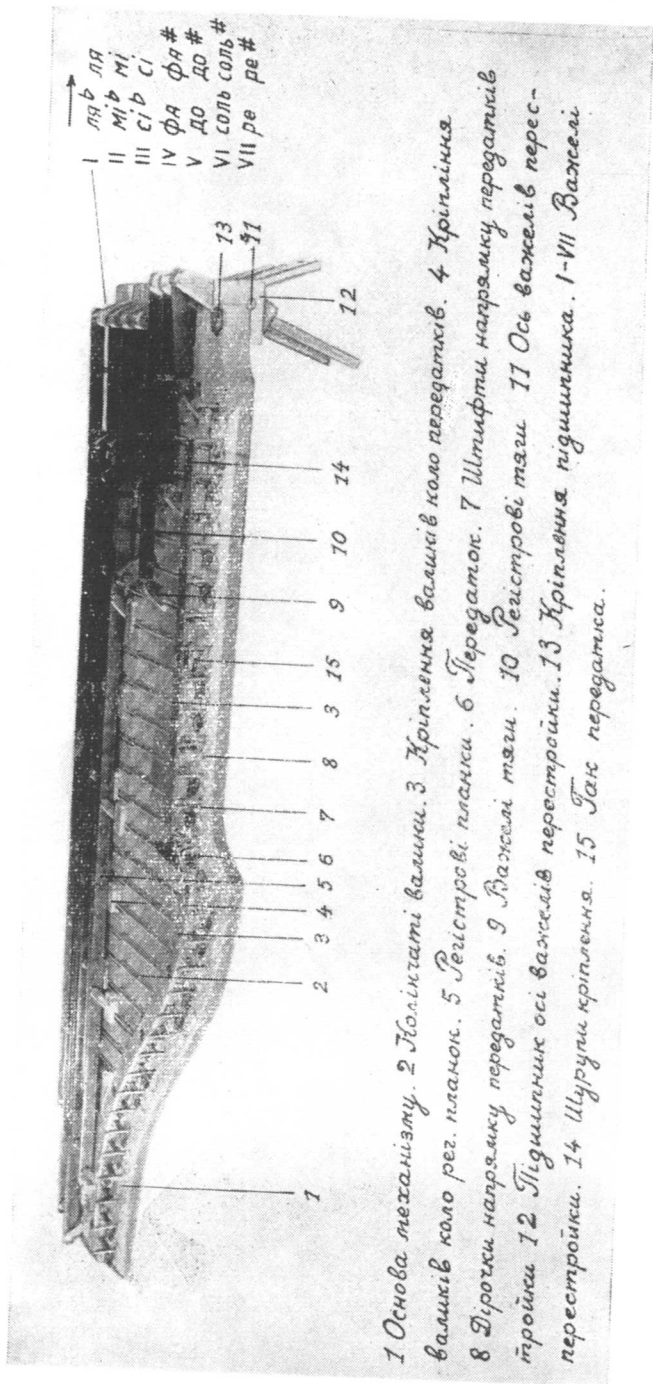 I ля♭ ля
II мі♭ мі
III сі♭ сі
IV фа фа#
V до до#
VI соль соль#
VII ре ре#
1 2 3 4 5 6 7 8 3 15 9 10 14 12 11 13
1 Основа механізму. 2 Колінчаті валики. 3. Кріплення валиків коло передатків. 4 Кріпління
валиків коло рег. планок. 5 Регістрові планки. 6 Передаток. 7 Штифти напрямку передатків
8 Дірочки напрямку передатків. 9 Важелі тяги. 10 Регістрові тяги 11 Ось важелів перес-
тройки 12 Підшипник осі важелів перестройки. 13 Кріплення підшипника. I-VII Важелі
перестройки. 14 Шурупи кріплення. 15 Гак передатка.